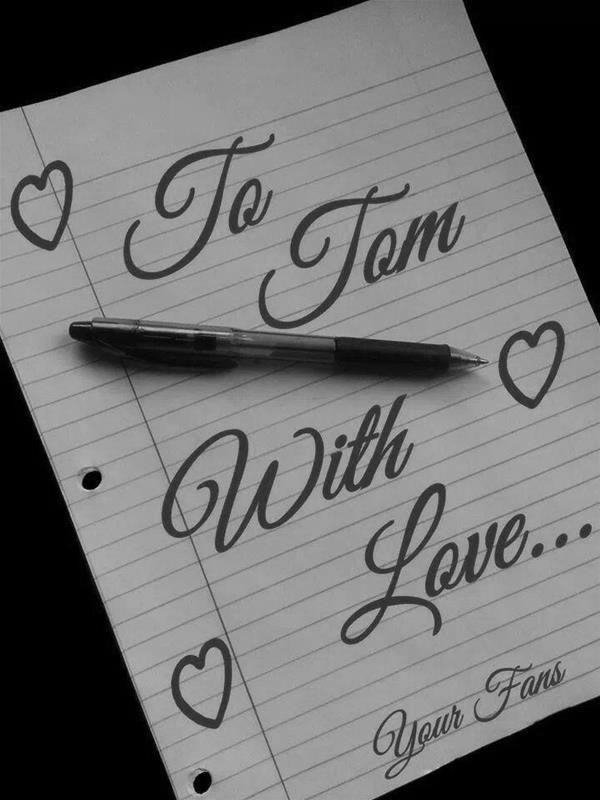 To
Tom
With
Love...
Your Fans